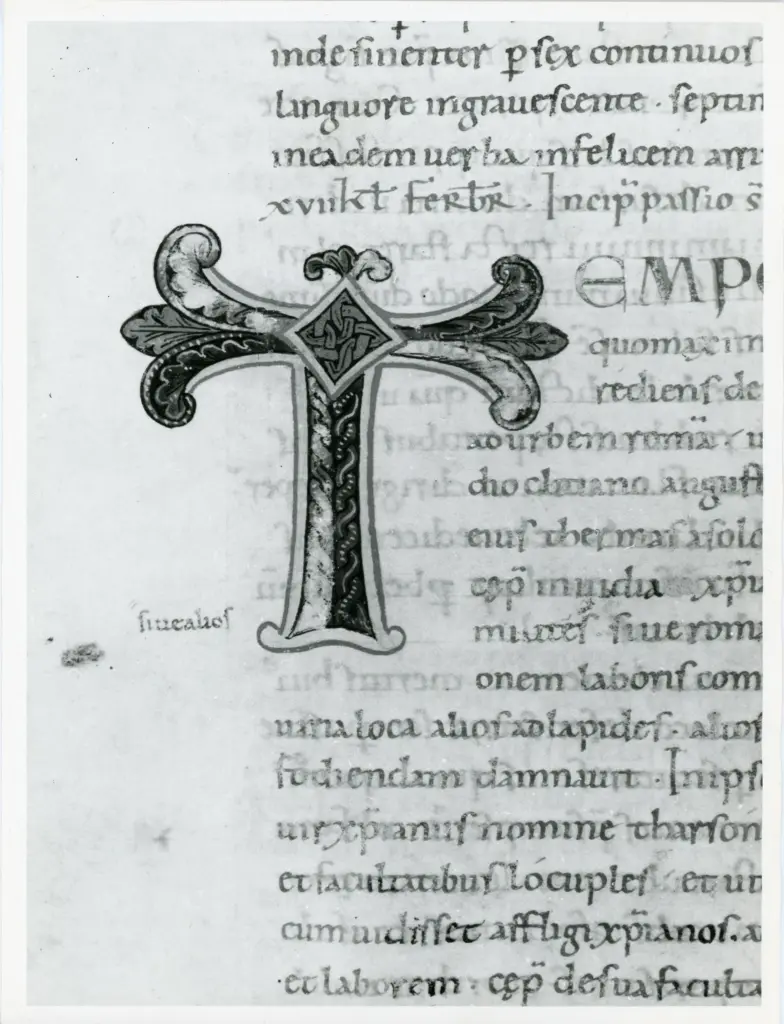 indesinenter p sex continuos
languore ingrauescente · septin
in eadem uerba infelicem arri
xvii kł FEBR̄. Incip̄ passio s̄
TEMPO
quo maxim
rediens de
ad urbem romā · u
diocletiano august
eius thermas ǝ solo
cęp̄ inuidia xp̄i
milites siue roma
siue alios
onem laboris com
uaria loca alios ad lapides · alios
fodiendam damnauit · In ips
uir xp̄ianus nomine tharson
et facultatibus locuples · et ut
cum uidisset affligi xp̄ianos. a
et laborem · cęp̄ de sua faculta